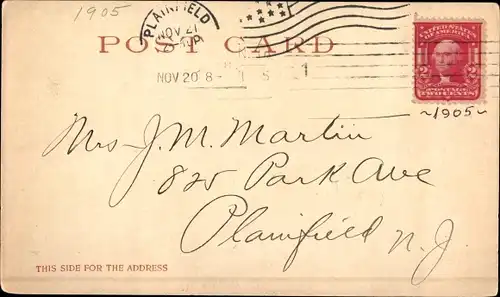 1905
PLAINFIELD
NOV 21
POST CARD
NOV 20 8-
UNITED STATES OF AMERICA
2 2
POSTAGE
TWO CENTS
~1905~
Mrs J. M. Martin
825 Park Ave
Plainfield N.J.
THIS SIDE FOR THE ADDRESS